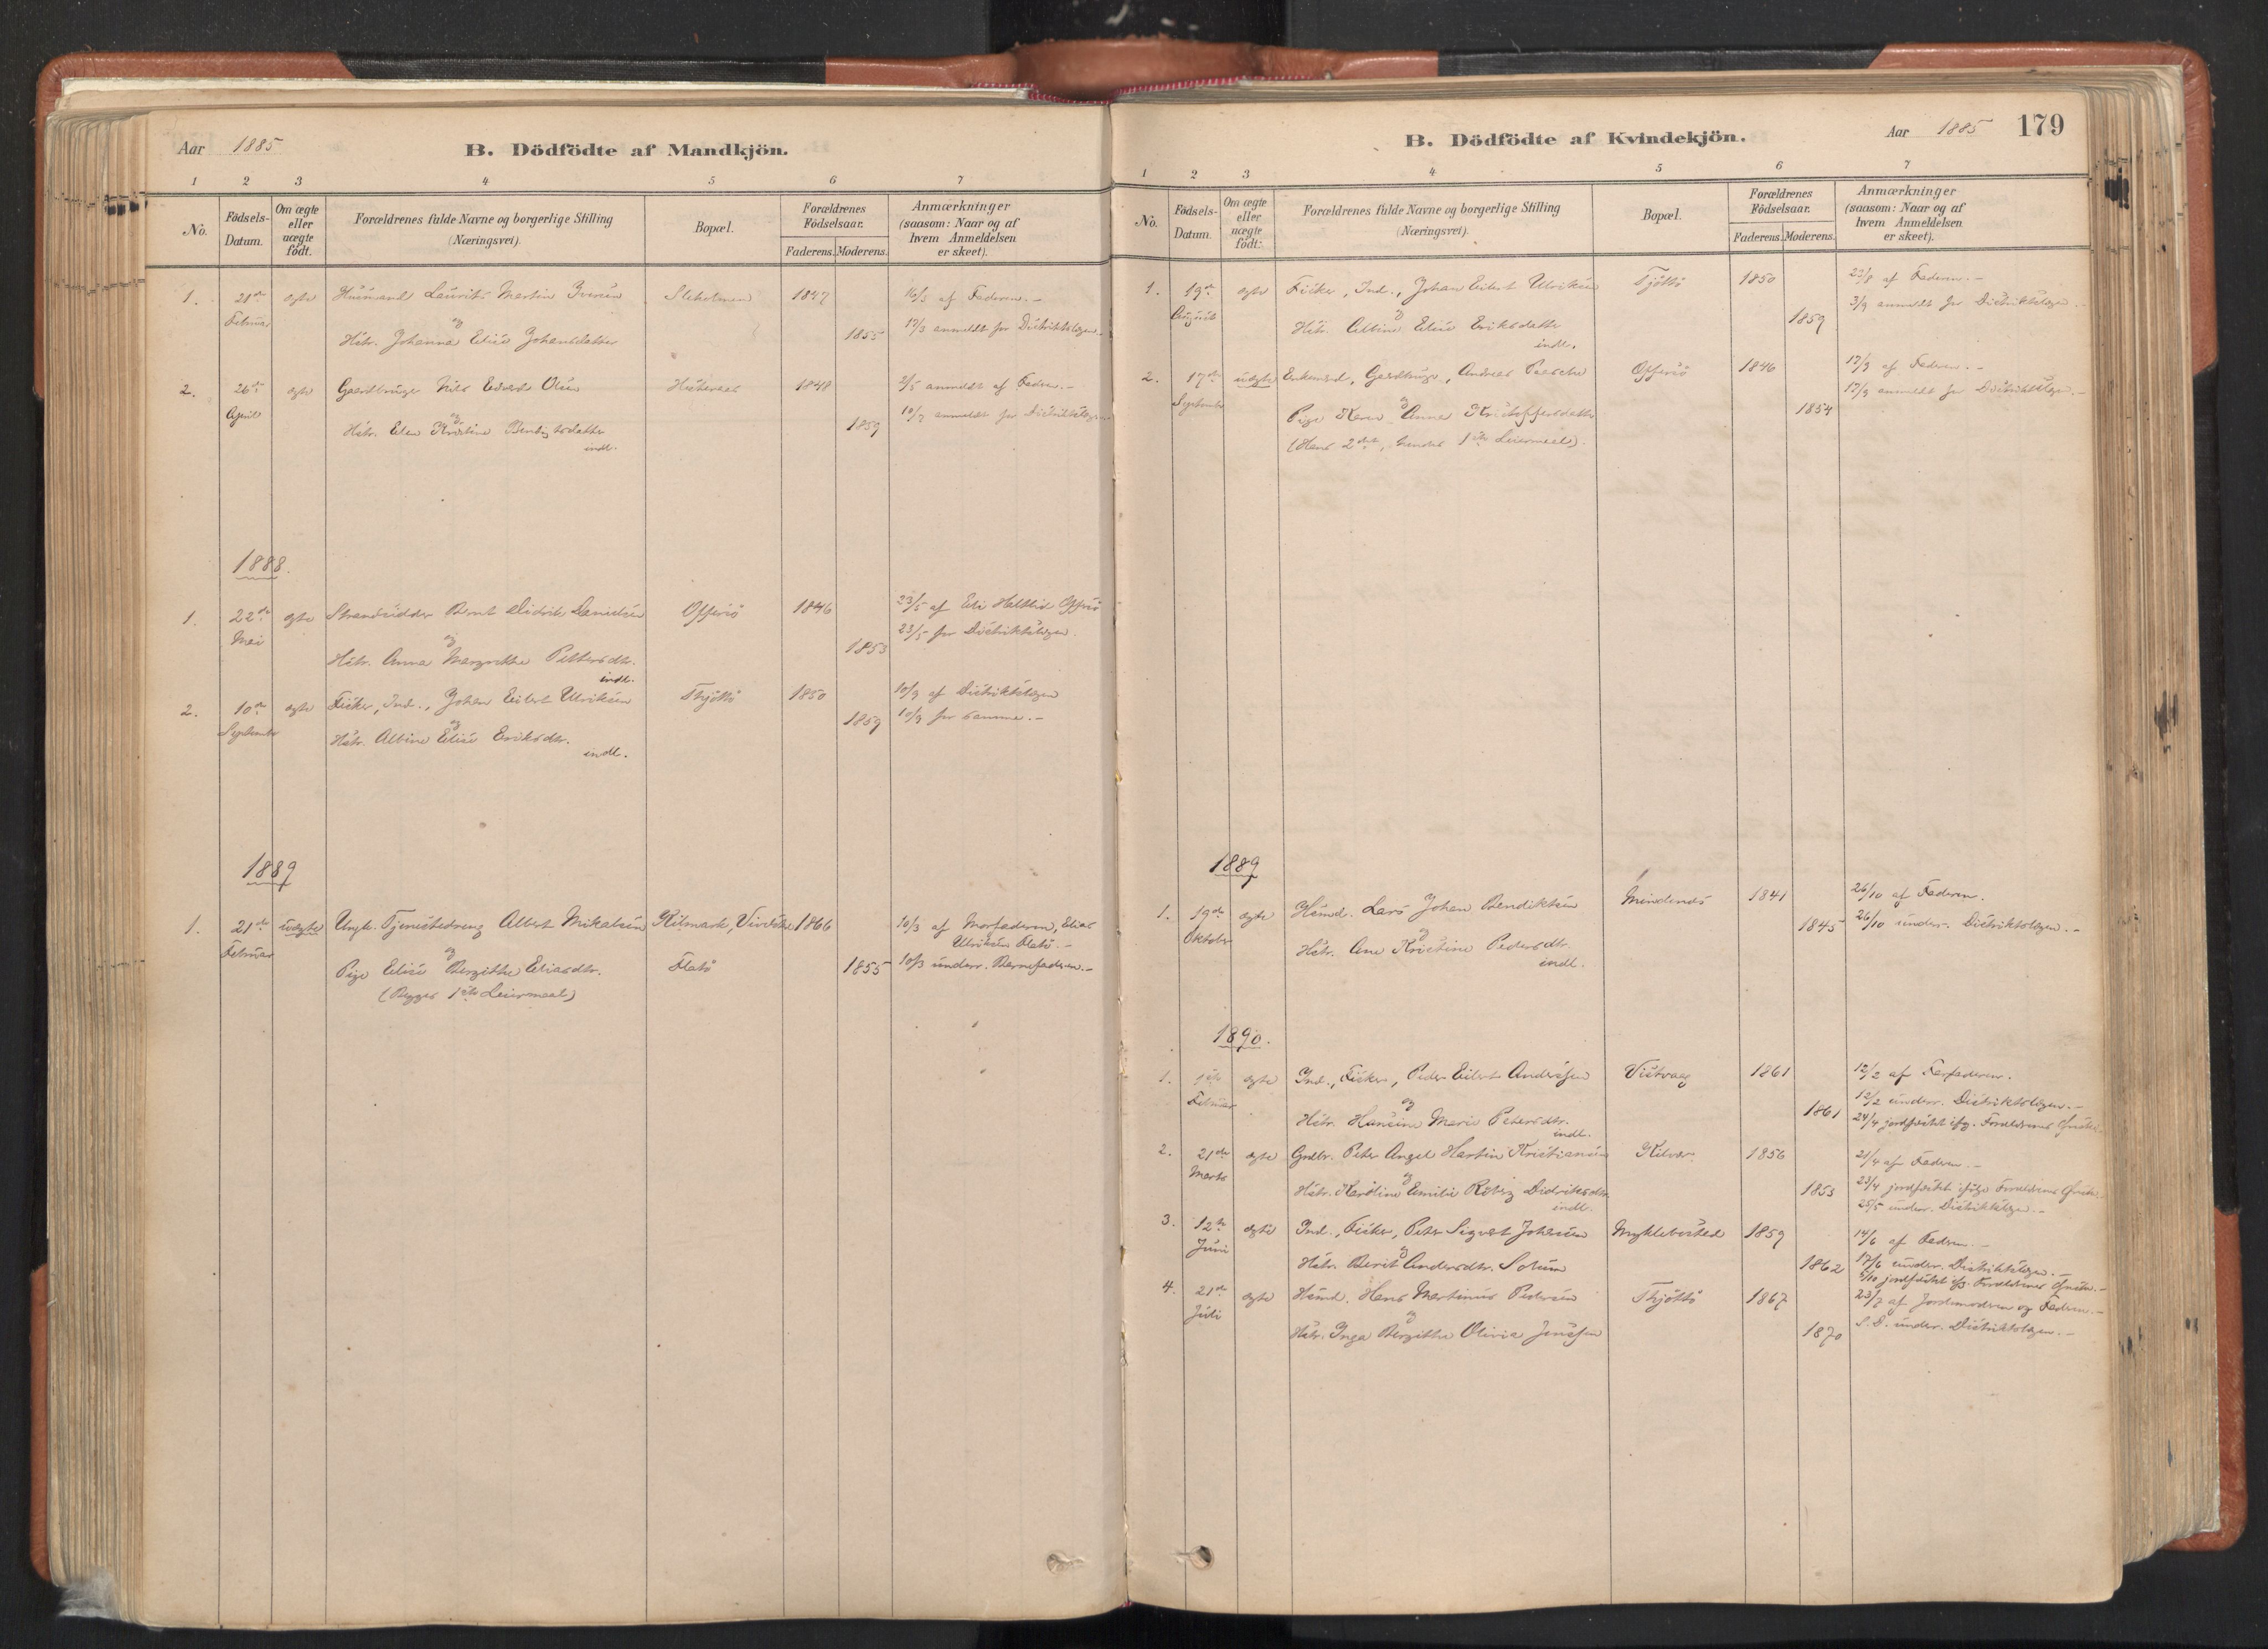 Aar 1885
B. Dödfödte af Mandkjön.
1 2 3 4 5 6 7
No.
Födsels-Datum.
Om ægte eller uægte födt.
Forældrenes fulde Navne og borgerlige Stilling (Næringsvei).
Bopæl.
Forældrenes Födselsaar.
Faderens. Moderens.
Anmærkninger (saasom: Naar og af hvem Anmeldelsen er skeet).
1. 21de ægte Husmand Laurits Martin Iversen 1847 16/3 af Faderen.-
Februar og 1855 17/3 anmeldt for Distriktslægen.-
Hstr. Johanna Elise Johansdatter
2. 26de ægte Gaardbruger Nils Edvard Olsen 1848 2/5 anmeldt af Faderen.-
April og 1859 anmeldt for Distriktslægen
Hstr. Elen Kristine Bentzdatter
indl.
1888.
1. 22de ægte Strandsidder Bernt Didrik Danielsen Offersö 1846 23/5 af Eli Offersö
Mai og 1853 23/5 for Distriktslægen.
Hstr. Anna Margrethe Pettersdtr.
indl.
2. 10de ægte Fisker, Ind., Johan Eilert Ulriksen Thjöttö 1850 10/9 af Distriktslægen
September og 1859 10/9 for samme.-
Hstr. Albine Elise Eriksdtr.
indl.
1889
1. 21de uægte Ungk. Tjenestedreng Albert Mikalsen Kilmark, 1866 10/3 af Morfaderen, Elias
Februar og Ulriksen Flatö.-
Pige Elise Bergithe Eliasdtr. Flatö 1855 10/3 underr. Barnefaderen.-
(Begges 1ste Leiermaal)
Aar 1885 179
B. Dödfödte af Kvindekjön.
1 2 3 4 5 6 7
No.
Födsels-Datum.
Om ægte eller uægte födt.
Forældrenes fulde Navne og borgerlige Stilling (Næringsvei).
Bopæl.
Forældrenes Födselsaar.
Faderens. Moderens.
Anmærkninger (saasom: Naar og af hvem Anmeldelsen er skeet).
1. 19de ægte Fisker, Ind., Johan Eilert Ulriksen Tjöttö 1850 23/8 af Faderen.-
August og 1859 3/9 anmeldt for Distriktslægen.-
Hstr. Albine Elise Eriksdatter
indl.
2. 17de uægte Enkemd., Gaardbruger, Andreas Offersö 1846 17/9 af Faderen.-
September og 1854 17/9 anmeldt for Distriktslægen.-
Pige Karen Anna Kristoffersdatter
(Hans 2det, hendes 1ste Leiermaal).
1889
1. 19de ægte Hsmd. Lars Johan Bendiksen Mindenes 1841 26/10 af Faderen.
Oktober og 1845 26/10 underr. Distriktslægen.-
Hstr. Ane Kristine Pedersdtr.
indl.
1890.
1. 1ste ægte Ind., Fisker, Peder Eilert Andersen Vistvaag 1861 12/2 af Farfaderen.
Februar og 1861 12/2 underr. Distriktslægen.-
Hstr. Hansine Marie Petersdtr. 24/4 jordfæstet ifg. Forældrenes Önske.
indl.
2. 21de ægte Grdbr. Peter Angel Hartvig Kristiansen Kilvær 1856 21/4 af Faderen.-
Marts og 1853 23/4 jordfæstet ifölge Forældrenes Önske.
Hstr. Karoline Emilie Didriksdtr. 25/5 underr. Distriktslægen.-
indl.
3. 12te ægte Ind., Fisker, Peter Sigvart Johansen Myklebostad 1859 14/6 af Faderen.-
Juni og 1862 17/6 underr. Distriktslægen.-
Hstr. Berit Andersdtr. Solum 5/10 jordfæstet ifg. Forældrenes Önske.-
4. 21de ægte Hsmd. Hans Martinus Pedersen Thjöttö 1867 23/7 af Jordmoderen og Faderen.-
Juli og 1870 S.D. underr. Distriktslægen.-
Hstr. Inga Bergitha Olivia Jensen